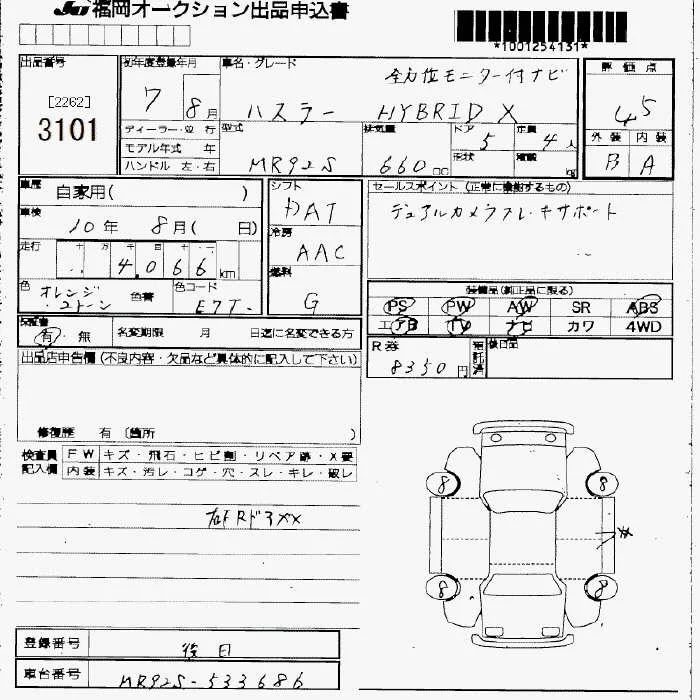 JU 福岡オークション出品申込書
*1001254131*
出品番号
[2262]
3101
初年度登録年月
7 8月
車名・グレード
全方位モニター付ナビ
ハスラー HYBRID X
評価点
4.5
外装 内装
B A
ディーラー・並行
モデル年式 年
ハンドル 左・右
型式
MR92S
排気量
660cc
ドア
5
形状
定員
4人
積載
kg
車歴 自家用( )
車検
10年 8月( 日)
走行
十 万 千 百 十 一
4,066km
色
オレンジ
2トーン
色替
色コード
E7T
シフト
DAT
冷房
AAC
燃料
G
セールスポイント (正常に機能するもの)
デュアルカメラブレーキサポート
装備品(純正品に限る)
PS PW AW SR ABS
エアB TV ナビ カワ 4WD
保証書
有・無
名変期限 月 日迄に名変できる方
R券
8350円
預託済
後日品
出品店申告欄 (不良内容・欠品など具体的に記入して下さい)
修復歴 有 〔箇所 )
検査員記入欄
FW キズ・飛石・ヒビ割・リペア跡・X要
内装 キズ・汚レ・コゲ・穴・スレ・キレ・破レ
8 8
8 8
登録番号 後日
車台番号 MR92S-533686